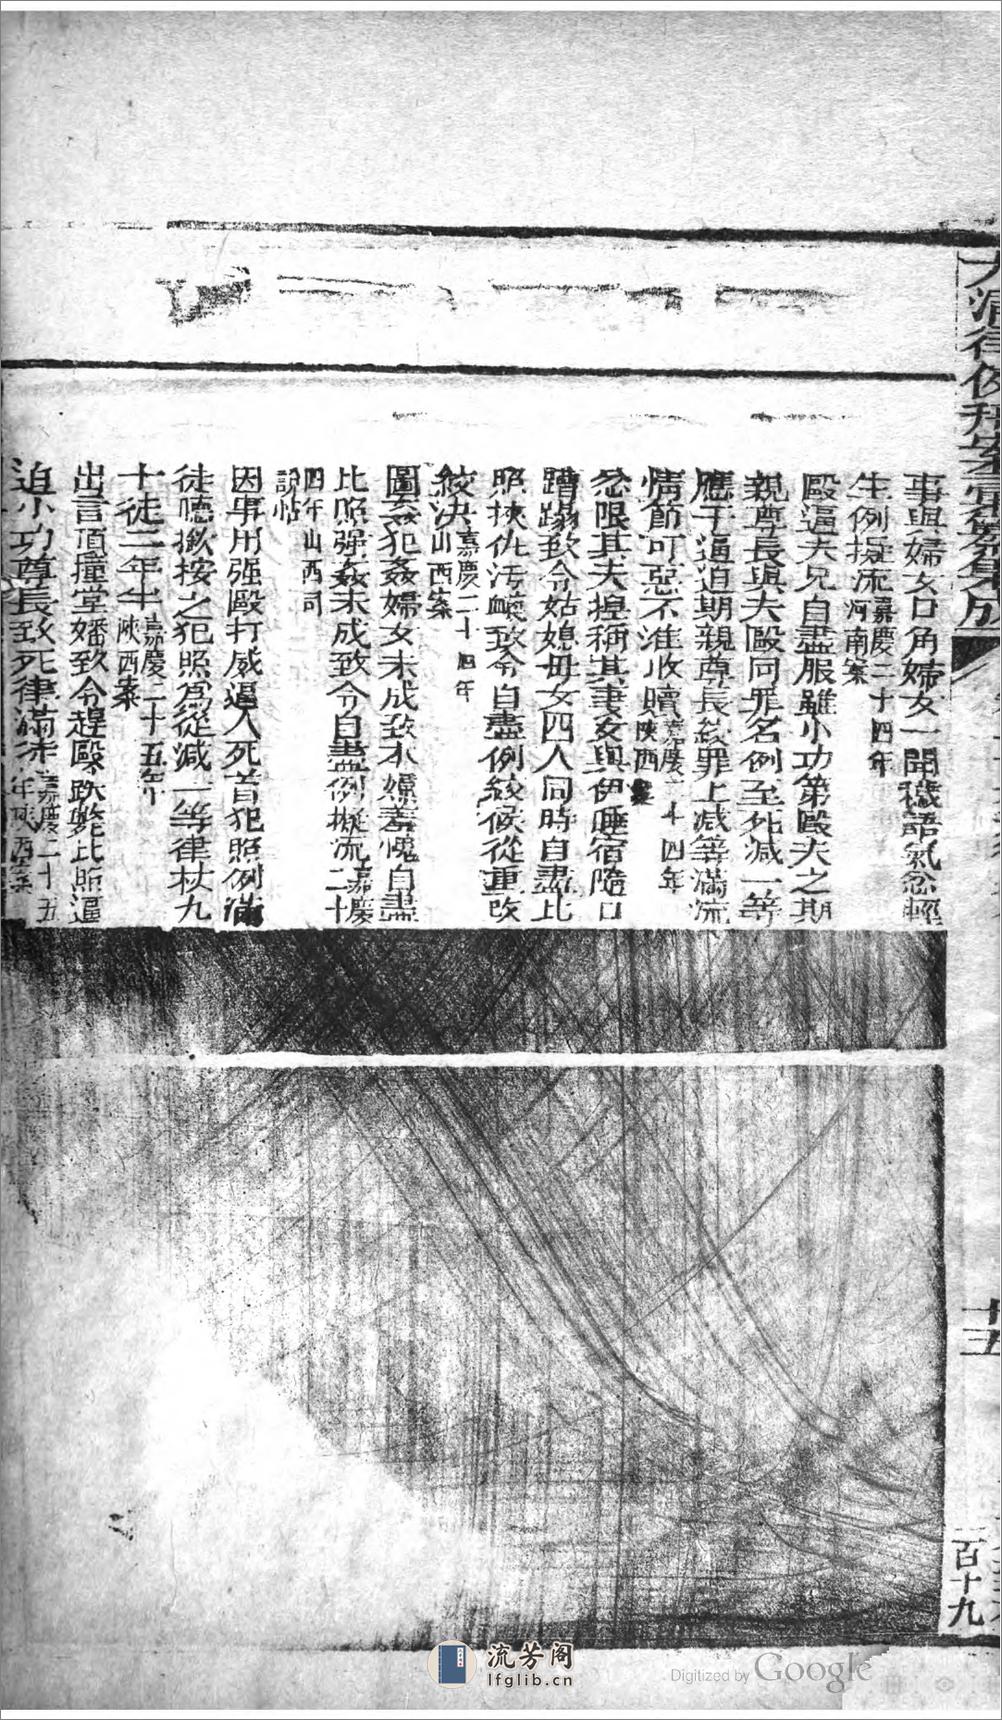 事與婦女口角婦女一聞穢語氣忿輕
生例擬流嘉慶二十四年河南案
毆逼夫兄自盡服雖小功第毆夫之期
親尊長與夫毆同罪名例至死減一等
應于逼迫期親尊長絞罪上減等滿流
情節可惡不准收贖嘉慶二十四年陝西案
忿限其夫捏稱其妻女與伊睡宿隨口
蹧蹋致令姑媳毋女四人同時自盡比
照挾仇汚衊致令自盡例絞候從重改
絞決嘉慶二十四年山西案
圖姦犯姦婦女未成致本婦羞愧自盡
比照强姦未成致令自盡例擬流嘉慶二十
四年山西司
說帖
因事用强毆打威逼人死首犯照例滿
徒聽揪按之犯照爲從減一等律杖九
十徒二年半嘉慶二十五年陝西案
出言頂撞堂嬸致令趕毆跌斃比照逼
迫小功尊長致死律滿徒嘉慶二十五年陝西案
大清律例刑案彙纂集成
十五
百十九
流芳阁
lfglib.cn
Digitized by Google